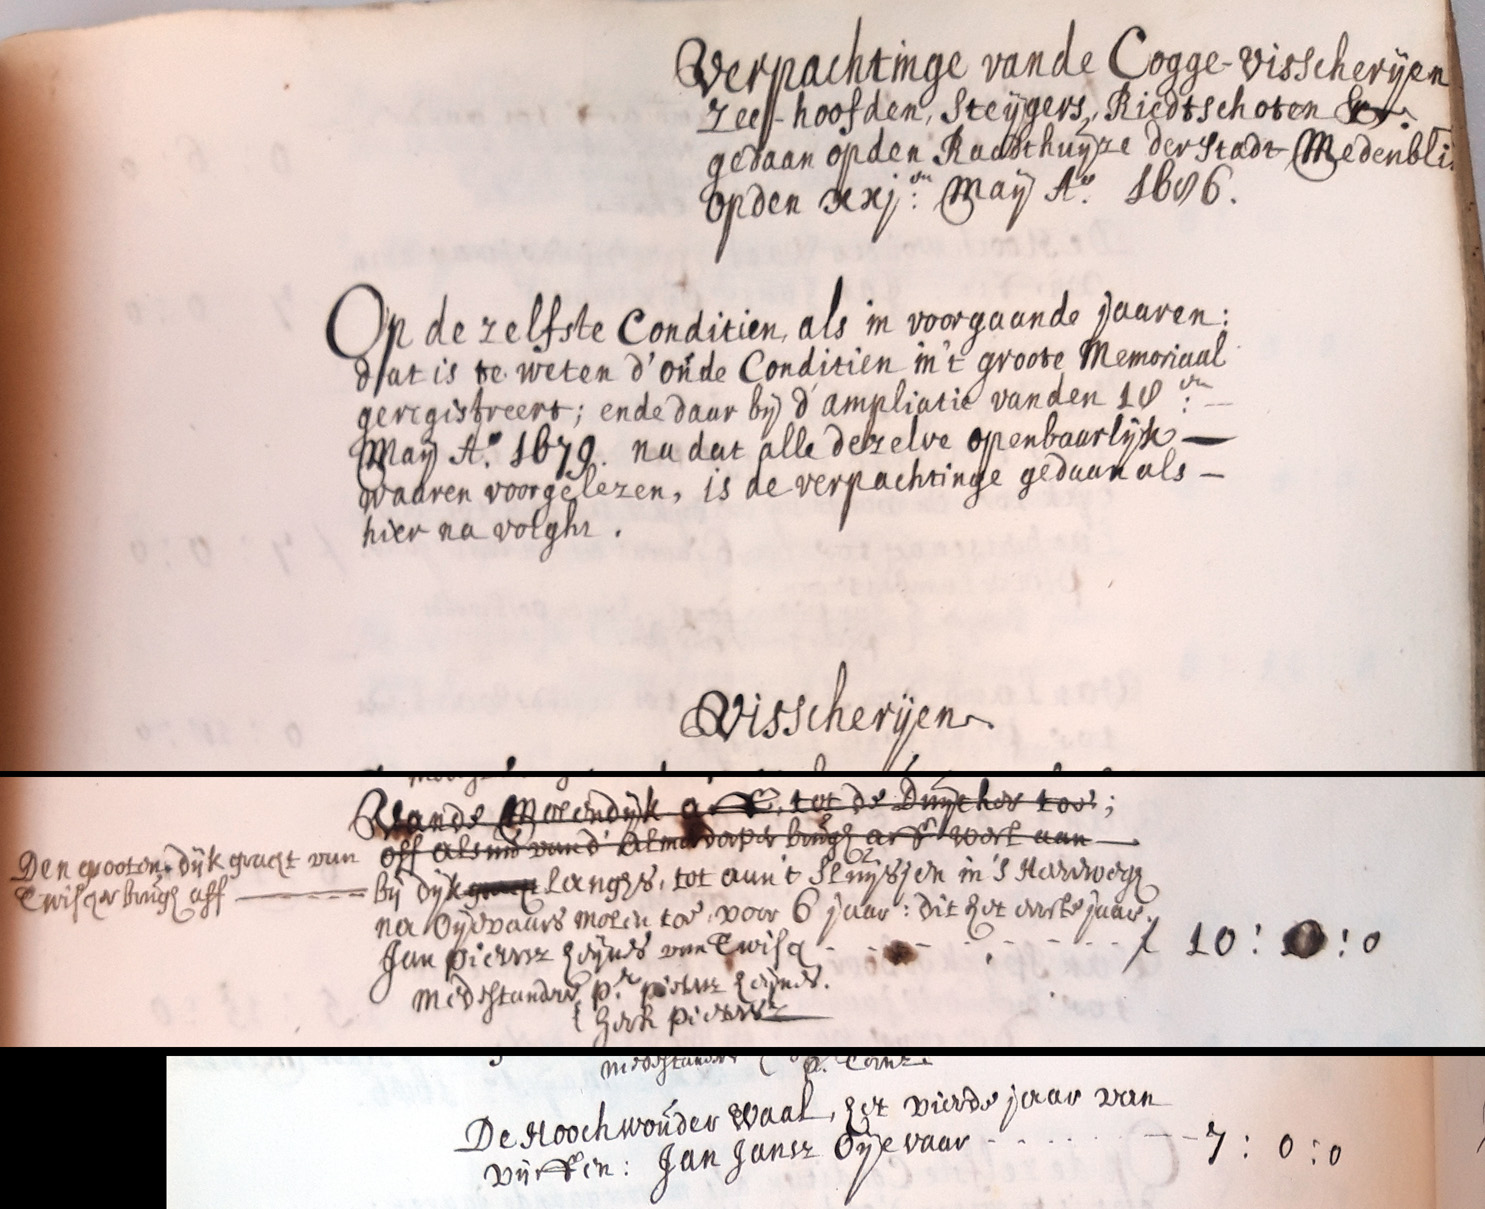 Verpachtinge vande Cogge-Visscherijen
Zee-hoofden, Steijgers, Riedtschoten &c.
gedaan op den Raadthuijze der Stadt Medenbli
op den xxj:en Maij Ao. 1686.
Op de zelfste Conditien, als in voorgaande jaaren:
dat is te weten d'oude Conditien in't groote Memoriaal
geregistreert; ende daar bij d'ampliatie vanden 18:en
Maij Ao. 1679. na dat alle dezelve openbaarlijk
waaren voorgelezen, is de verpachtinge gedaan als
hier na volght.
Visscherijen
Vande Moerdijk aff, tot de toe;
off als vand' Almerdorper brugh aff werf aan
Den grooten dijk graft van
Twisker brugh aff
bij dijk graft langhs, tot aan't Sluijsjen in 's Herdwegh
na Oijevaars molen toe, voor 6 jaar: dit het eerste jaar.
Jan pietersz heijnes van Twisk f 10:0:0
Medestanders pr. pietersz heijnes.
herk pietersz
medestanders
De Hoochwouder Waal, het vierde jaar van
vijffen: Jan Jansz Oijevaar 7:0:0